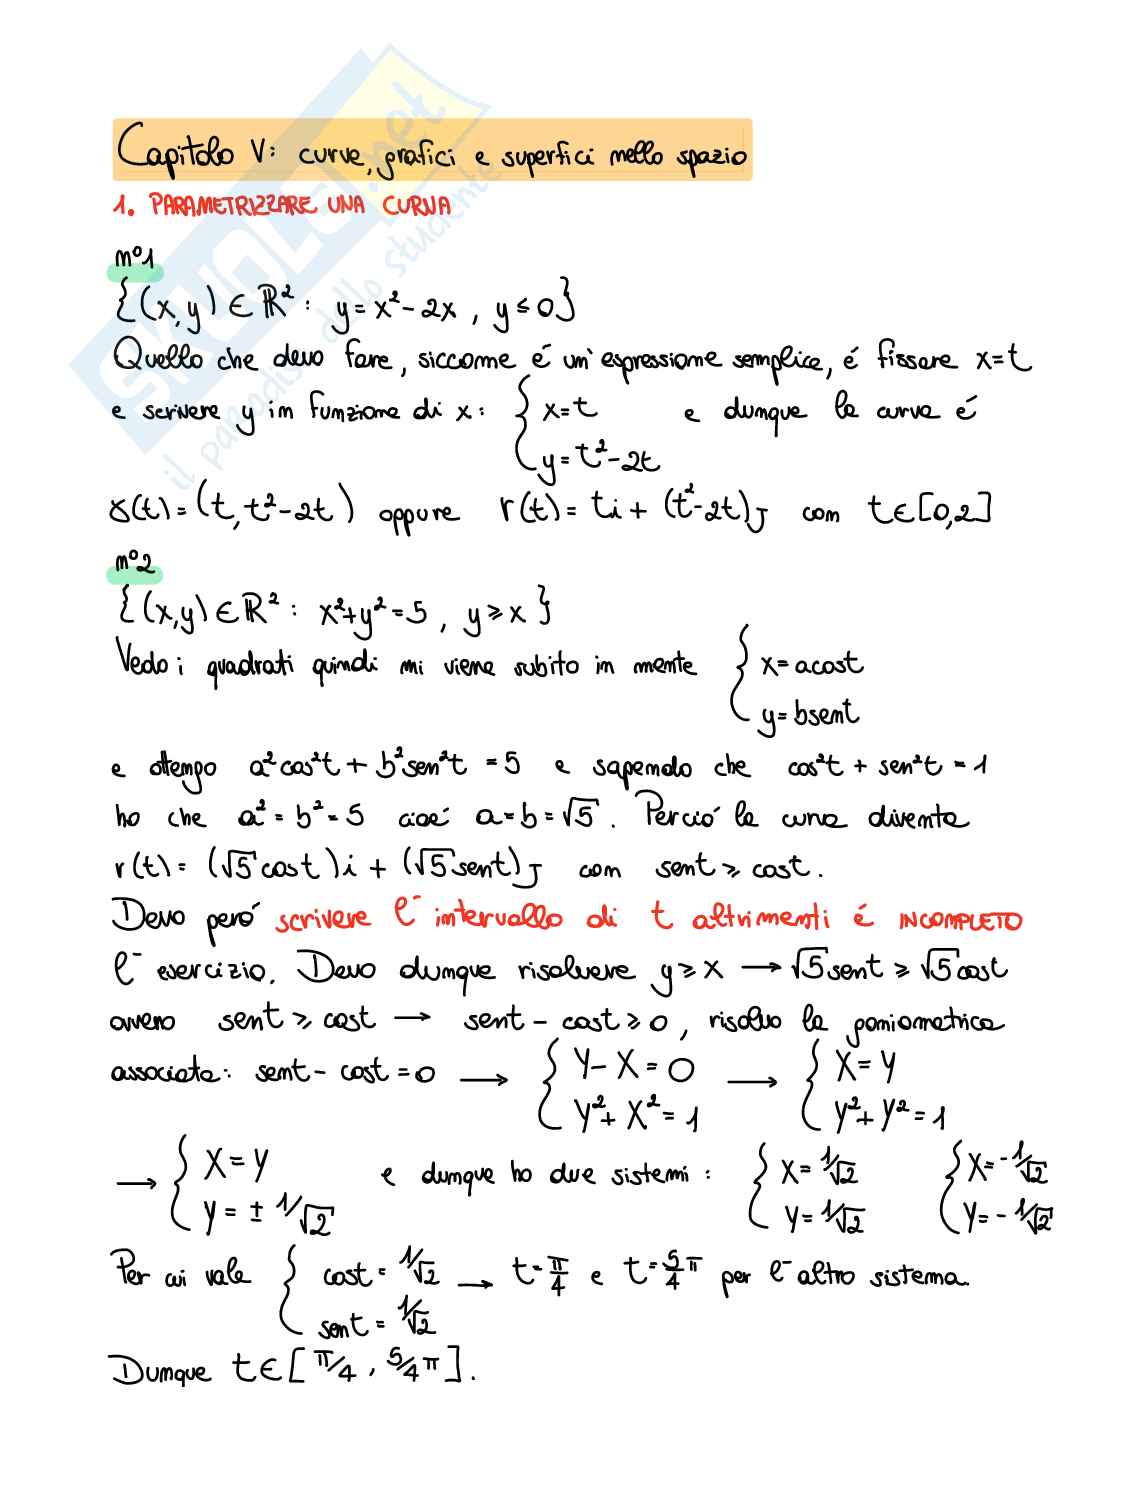 Capitolo V: curve, grafici e superfici nello spazio
1. PARAMETRIZZARE UNA CURVA
n°1
{(x,y) ∈ ℝ² : y = x² - 2x , y ≤ 0}
Quello che devo fare, siccome é un'espressione semplice, é fissare x=t
e scrivere y in funzione di x: { x=t e dunque la curva é
y = t² - 2t
γ(t) = (t, t² - 2t) oppure r(t) = t i + (t² - 2t) J con t ∈ [0,2]
n°2
{(x,y) ∈ ℝ² : x² + y² = 5 , y ≥ x}
Vedo i quadrati quindi mi viene subito in mente { x = acost
y = bsent
e ottengo a²cos²t + b²sen²t = 5 e sapendo che cos²t + sen²t = 1
ho che a² = b² = 5 cioé a = b = √5. Perció la curva diventa
r(t) = (√5 cost) i + (√5 sent) J con sent ≥ cost.
Devo peró scrivere l'intervallo di t altrimenti é INCOMPLETO
l'esercizio. Devo dunque risolvere y ≥ x → √5 sent ≥ √5 cost
ovvero sent ≥ cost → sent - cost ≥ 0, risolvo la goniometrica
associata: sent - cost = 0 → { Y - X = 0 → { X = Y
Y² + X² = 1 Y² + Y² = 1
→ { X = Y e dunque ho due sistemi: { X = 1/√2 { X = -1/√2
Y = ± 1/√2 Y = 1/√2 Y = - 1/√2
Per cui vale { cost = 1/√2 → t = π/4 e t = 5/4 π per l'altro sistema.
sent = 1/√2
Dunque t ∈ [π/4 , 5/4 π].
SKUOLA.net
il paradiso dello studente